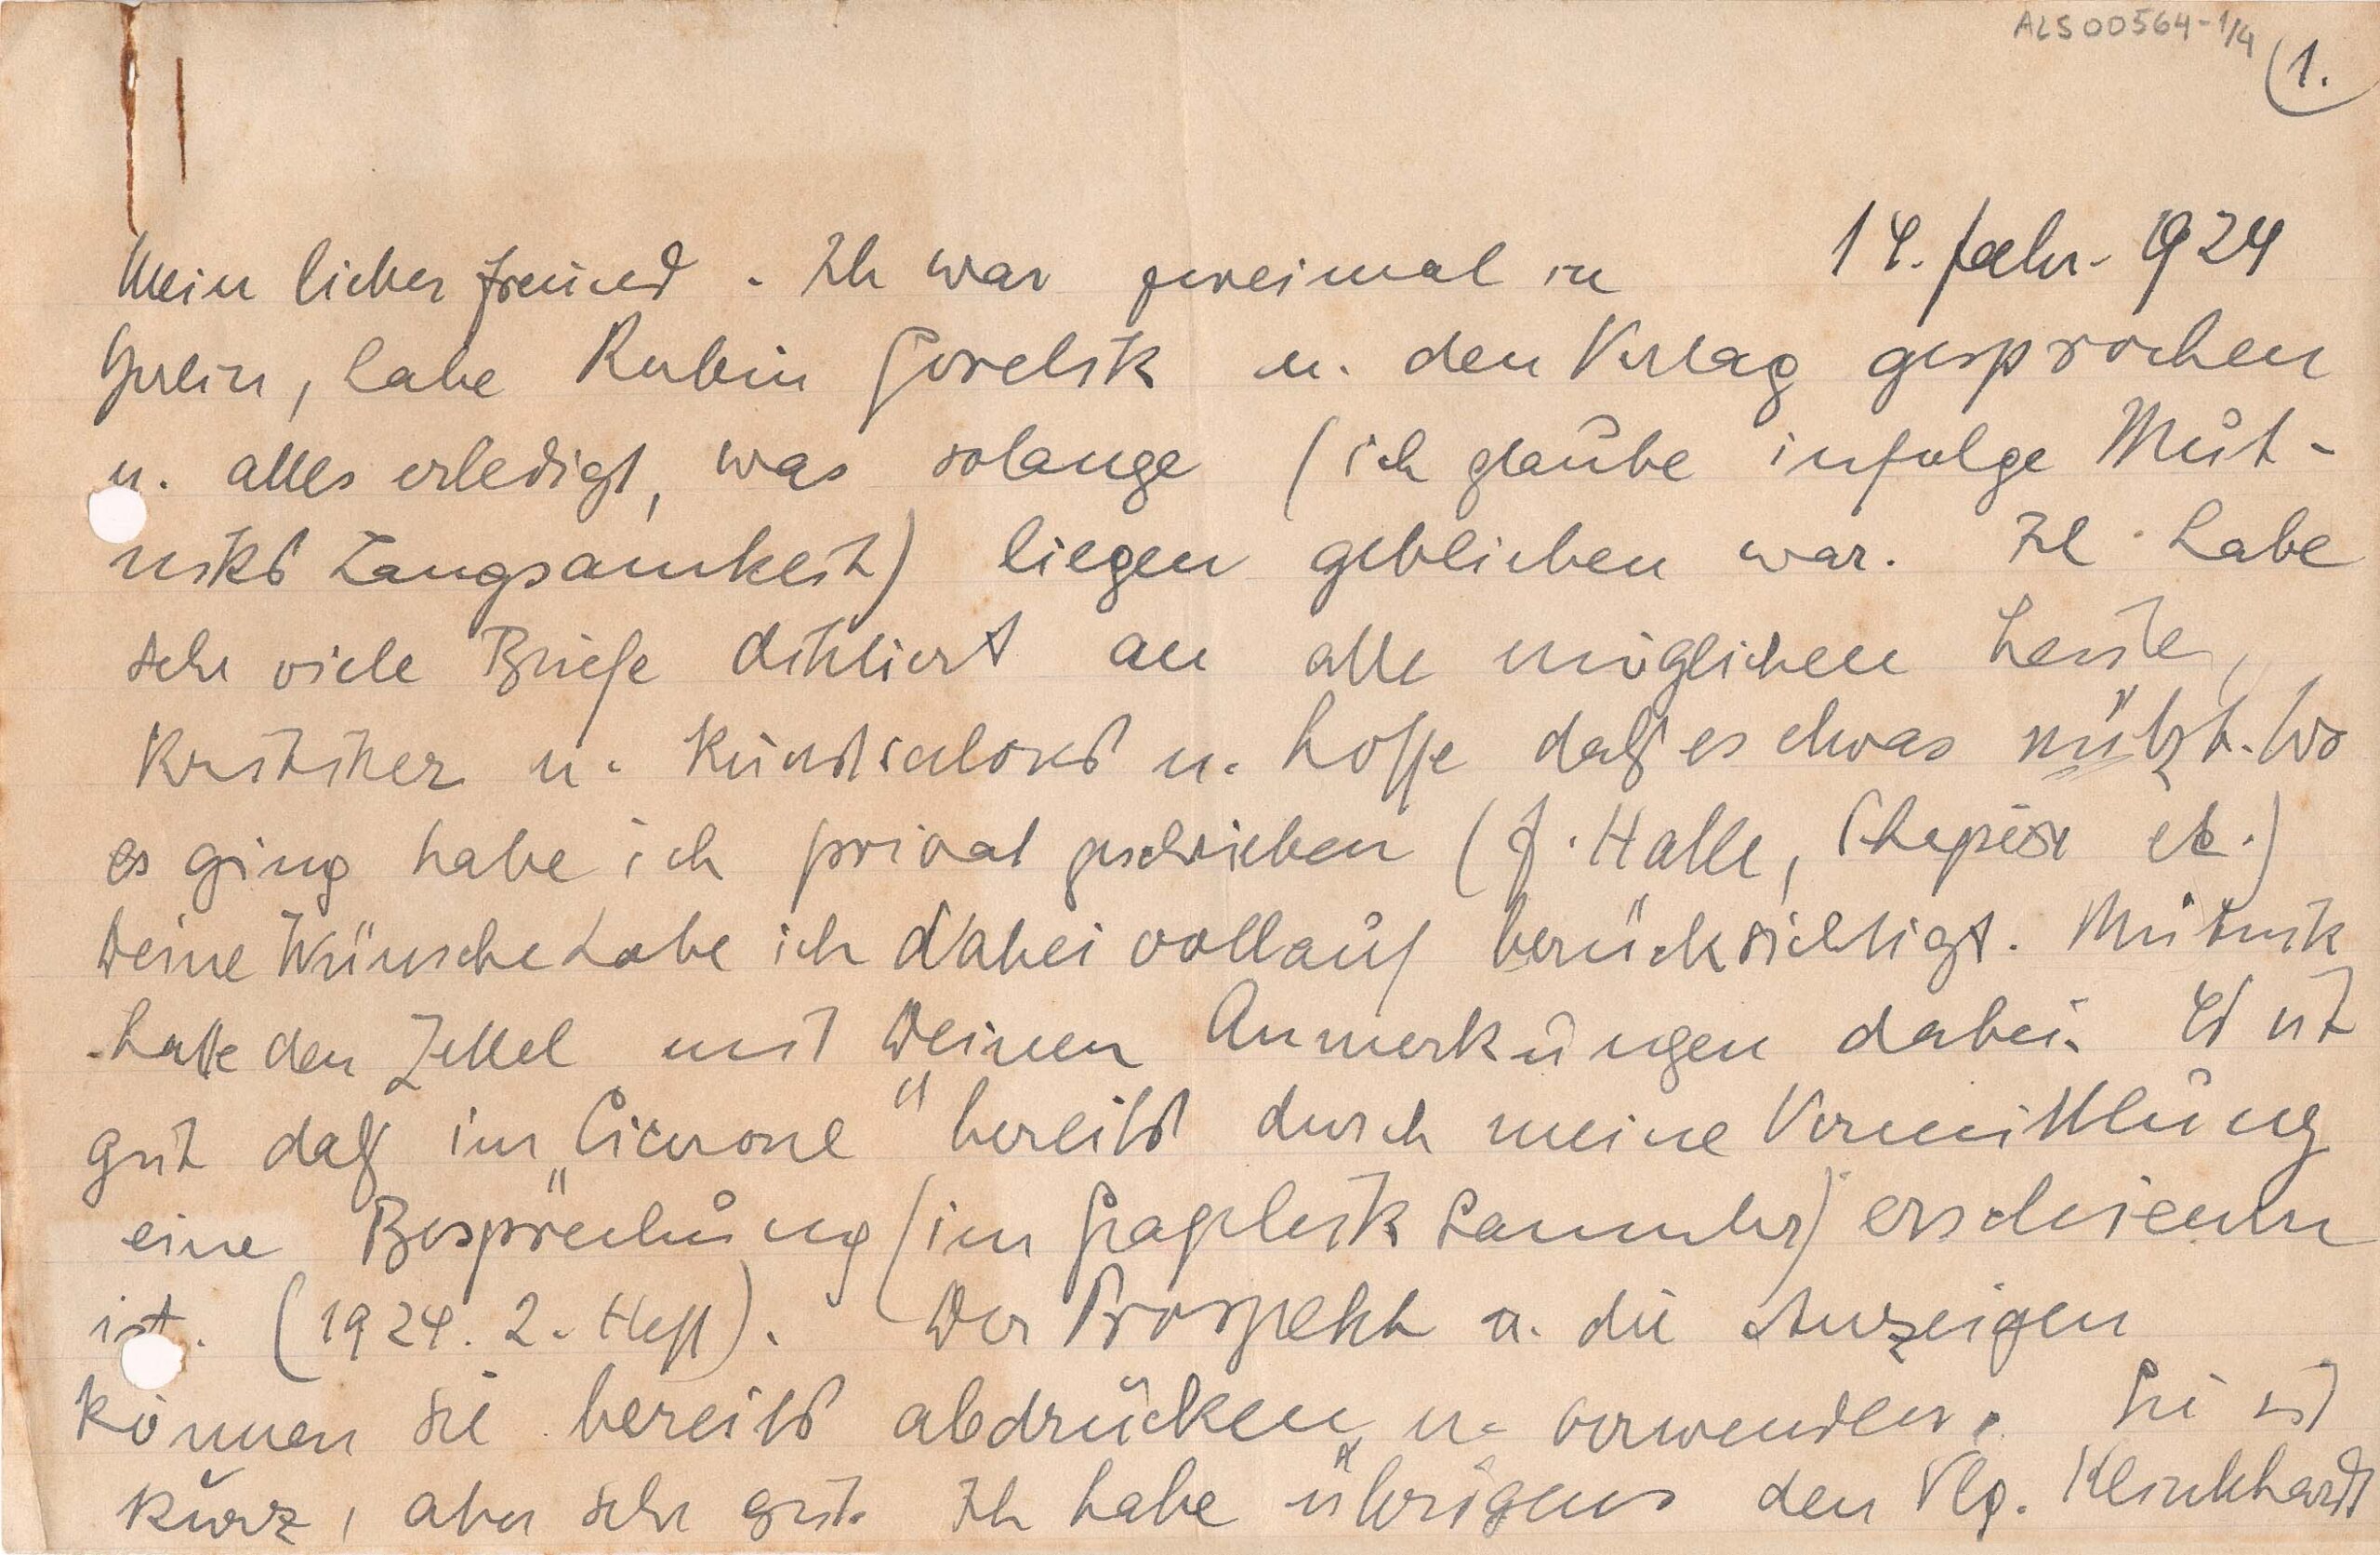 ALS00564-1/4
1.
14. Febr. 1924
Mein lieber Freund. Ich war zweimal in
Berlin, habe Rubin Gorelik u. den Verlag gesprochen
u. alles erledigt, was solange (ich glaube infolge Mut-
niks Langsamkeit) liegen geblieben war. Ich habe
sehr viele Briefe diktiert an alle möglichen Leute,
Kritiker u. Kunstsalons u. hoffe daß es etwas nützt. Wo
es ging habe ich privat geschrieben (J. Halle, etc.)
Deine Wünsche habe ich dabei vollauf berücksichtigt. Mutnik
hatte den Zettel mit Deinen Anmerkungen dabei. Es ist
gut daß im „Cicerone" bereits durch meine Vermittlung
eine Besprechung (im Graphik Sammler) erschienen
ist. (1924. 2. Heft). Der Prospekt u. die Anzeigen
können sie bereits abdrucken u. verwenden. Sie ist
kurz, aber sehr gut. Ich habe übrigens den Vlg. Klinkhardt